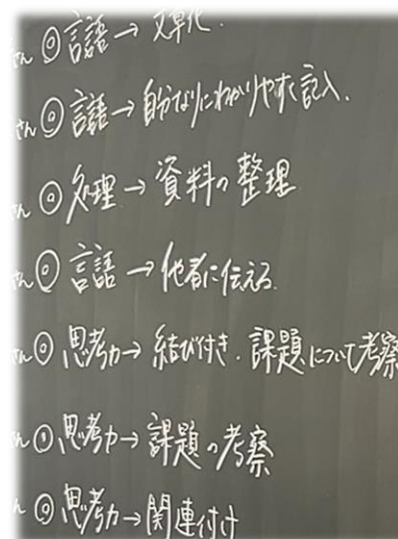 さん ◎言語→文章化.
さん ◎言語→自分なりにわかりやすく記入.
さん ◎処理→資料の整理
さん ◎言語→他者に伝える.
さん ◎思考力→結び付き.課題について考察
さん ◎思考力→課題の考察
ん ◎思考力→関連付け